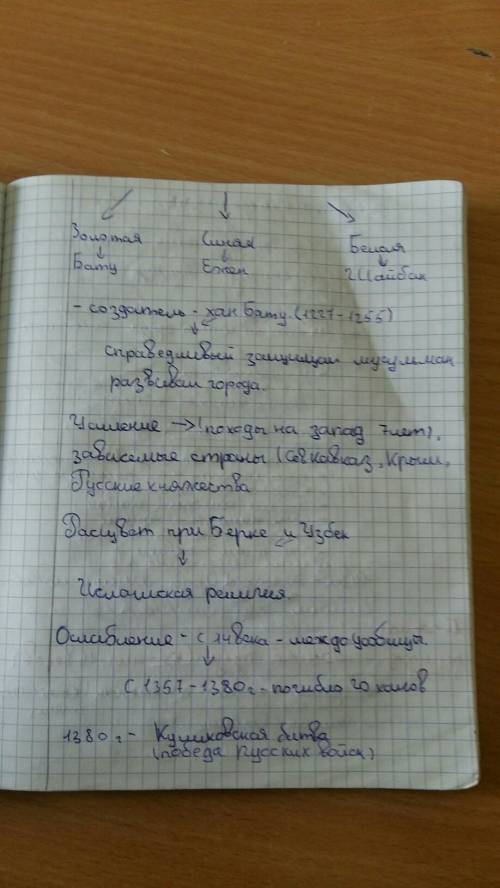 Золотая Синяя Белая
Бату Ежен Шайбан
- создатель - хан Бату (1227-1255)
справедливый защищал мусульман
развивал города.
Усиление → (походы на запад 7 лет),
зависимые страны (Сев Кавказ, Крым,
Русские княжества
Расцвет при Берке и Узбек
Исламская религия.
Ослабление - с 14 века - междоусобицы.
С 1357-1380 г - погибло 20 ханов
1380 г - Куликовская битва
(победа Русских войск)